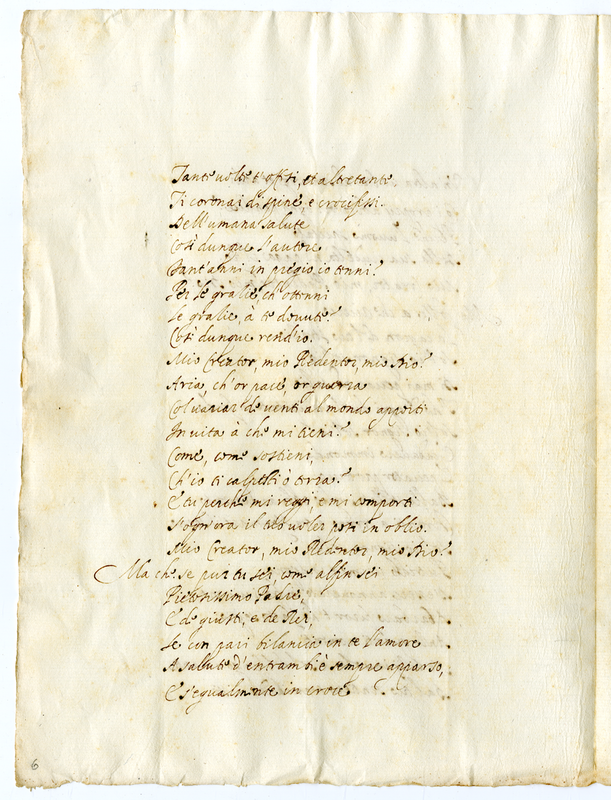 Tante uolte t'offesi, et altretante
Ti coronai di spine, e crocifissi.
Dell'umana salute
Così dunque l'autore
Tant'anni in pregio io tenni?
Per le gratie, ch'ottenni
Le gratie, à te douute?
Così dunque rend'io.
Mio Creator, mio Redentor, mio Dio?
Aria, ch'or pace, or guerra
Col uariar de venti al mondo apporti
In uita à che mi tieni?
Come, come sostieni,
Ch'io ti calpesti ò terra?
E tu perche mi reggi, e mi comporti
S'ogn'ora il tuo uoler posi in oblio.
Mio Creator, mio Redentor, mio Dio?
Ma che se pur tu sei, come alfin sei
Pietosissimo Padre,
E de giusti, e de Rei,
Se con pari bilancia in te l'amore
A salute d'entrambi è sempre apparso,
E s'egualmente in croce
6